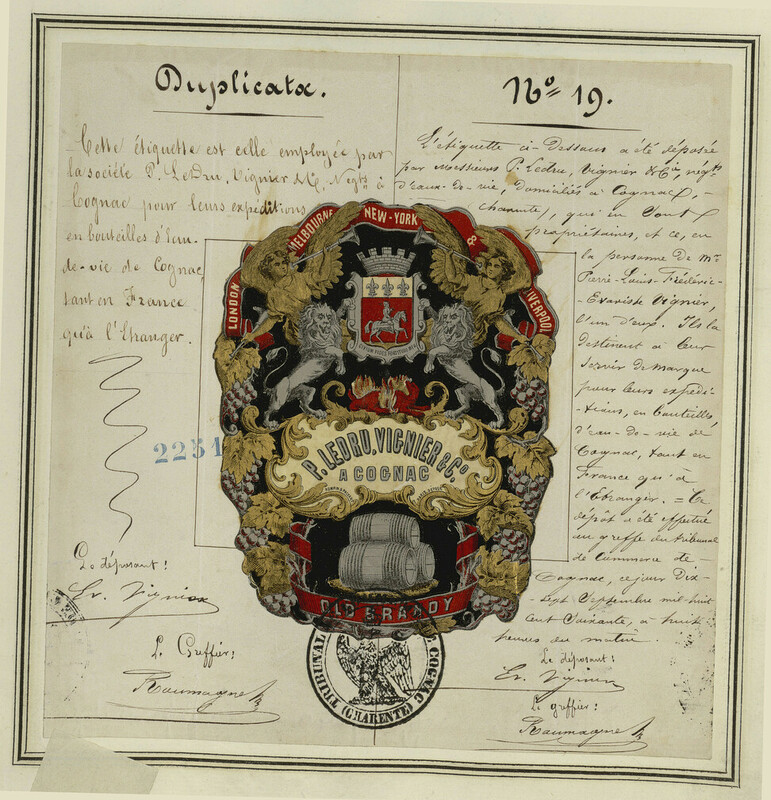 Duplicata.
Cette étiquette est celle employée par
la société P. LeDru, Vignier & Cie, Negts à
Cognac pour leurs expéditions
en bouteilles d'Eau-
de-vie de Cognac,
tant en France
qu'à l'Etranger.
2251
Le déposant:
Er. Vignier
Le Greffier:
Roumagne
No 19.
L'étiquette ci-Dessus a été déposée
par Messieurs P. Ledru, Vignier & Cie, négts
d'eaux-de-vie, domiciliés à Cognac,-
charente, qui en Sont
propriétaires, et ce, en
la personne de Mr
Pierre-Louis-Frédéric-
Evariste Vignier,
l'un d'eux. Ils la
destinent à Leur
Servir de Marque
pour leurs expédi-
-tions, en bouteilles,
d'eau-de-vie de
Cognac, tant en
France qu'à
l'Etranger. = Ce
dépôt a été effectué
au greffe du tribunal
de Commerce de-
Cognac, ce jour Dix-
sept Septembre mil huit
cent Soixante, à huit
heures du matin.
Le déposant:
Er. Vignier
Le greffier:
Roumagne
LONDON MELBOURNE NEW-YORK & LIVERPOOL
P. LEDRU, VIGNIER & Co
A COGNAC
OLD BRANDY
TRIBUNAL COGNAC
(CHARENTE)